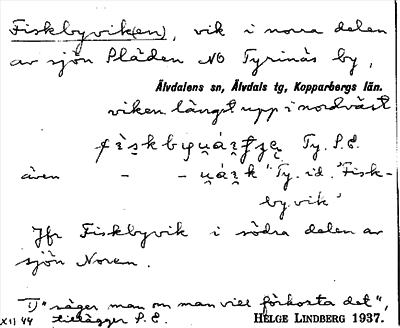 Fiskbyvik(en), vik i norra delen
av sjön Pläden NO Tyrinäs by,
Älvdalens sn, Älvdals tg, Kopparbergs län.
viken längst upp i nordväst
Ty. P.E.
även - - "Ty. id. "Fisk-
byvik"
Jfr Fiskbyvik i södra delen av
sjön Noren.
1) "säger man om man vill förkorta det",
XII 44 tillägger P.E. HELGE LINDBERG 1937.